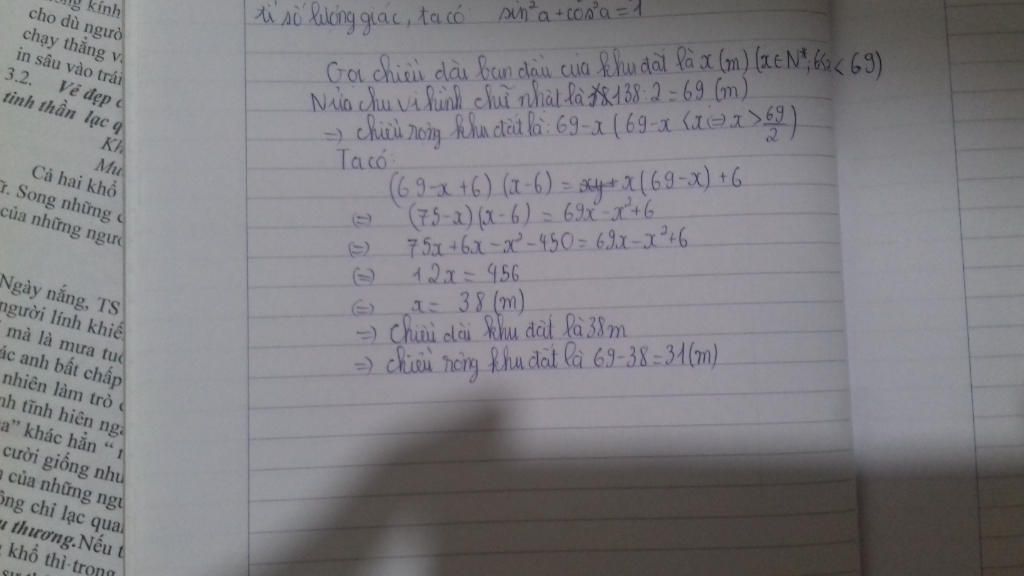 kính
cho dù ngườ
chạy thẳng v
in sâu vào trái
3.2. Vẻ đẹp
tinh thần lạc q
Kh
Mư
Cả hai khổ
Song những
của những ngườ
Ngày nắng, TS
người lính khiế
mà là mưa tuô
ác anh bất chấp
nhiên làm trò
nh tĩnh hiên ng
a” khác hẳn “
cười giống như
của những ngư
ông chỉ lạc qua
thương. Nếu t
khổ thì trong
tỉ số lượng giác, ta có sin²a + cos²a = 1
Gọi chiều dài ban đầu của khu đất là x (m) (x∈N*, < 69)
Nửa chu vi hình chữ nhật là 138:2 = 69 (m)
=> chiều rộng khu đất là: 69-x (69-x < x <=> x > 69/2)
Ta có:
(69-x+6) (x-6) = x(69-x) + 6
<=> (75-x)(x-6) = 69x - x² + 6
<=> 75x + 6x - x² - 450 = 69x - x² + 6
<=> 12x = 456
<=> x = 38 (m)
=> Chiều dài khu đất là 38m
=> chiều rộng khu đất là 69-38 = 31(m)